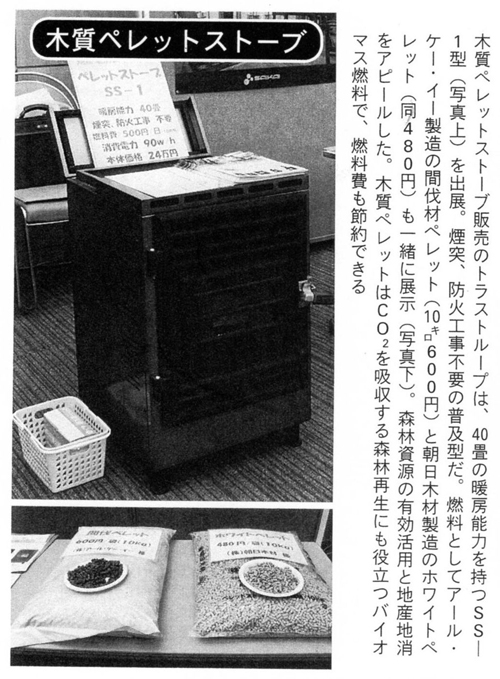 木質ペレットストーブ
SAIKO
ペレットストーブ
SS-1
暖房能力 40畳
煙突、防火工事 不要
燃料費 500円 日
消費電力 90wh
本体価格 24万円
間伐ペレット
600円/袋(10kg)
ホワイトペレット
480円/袋(10kg)
(株)朝日木材 製
木質ペレットストーブ販売のトラストループは、40畳の暖房能力を持つSS―
1型（写真上）を出展。煙突、防火工事不要の普及型だ。燃料としてアール・
ケー・イー製造の間伐材ペレット（10㌔600円）と朝日木材製造のホワイトペ
レット（同480円）も一緒に展示（写真下）。森林資源の有効活用と地産地消
をアピールした。木質ペレットはCO₂を吸収する森林再生にも役立つバイオ
マス燃料で、燃料費も節約できる